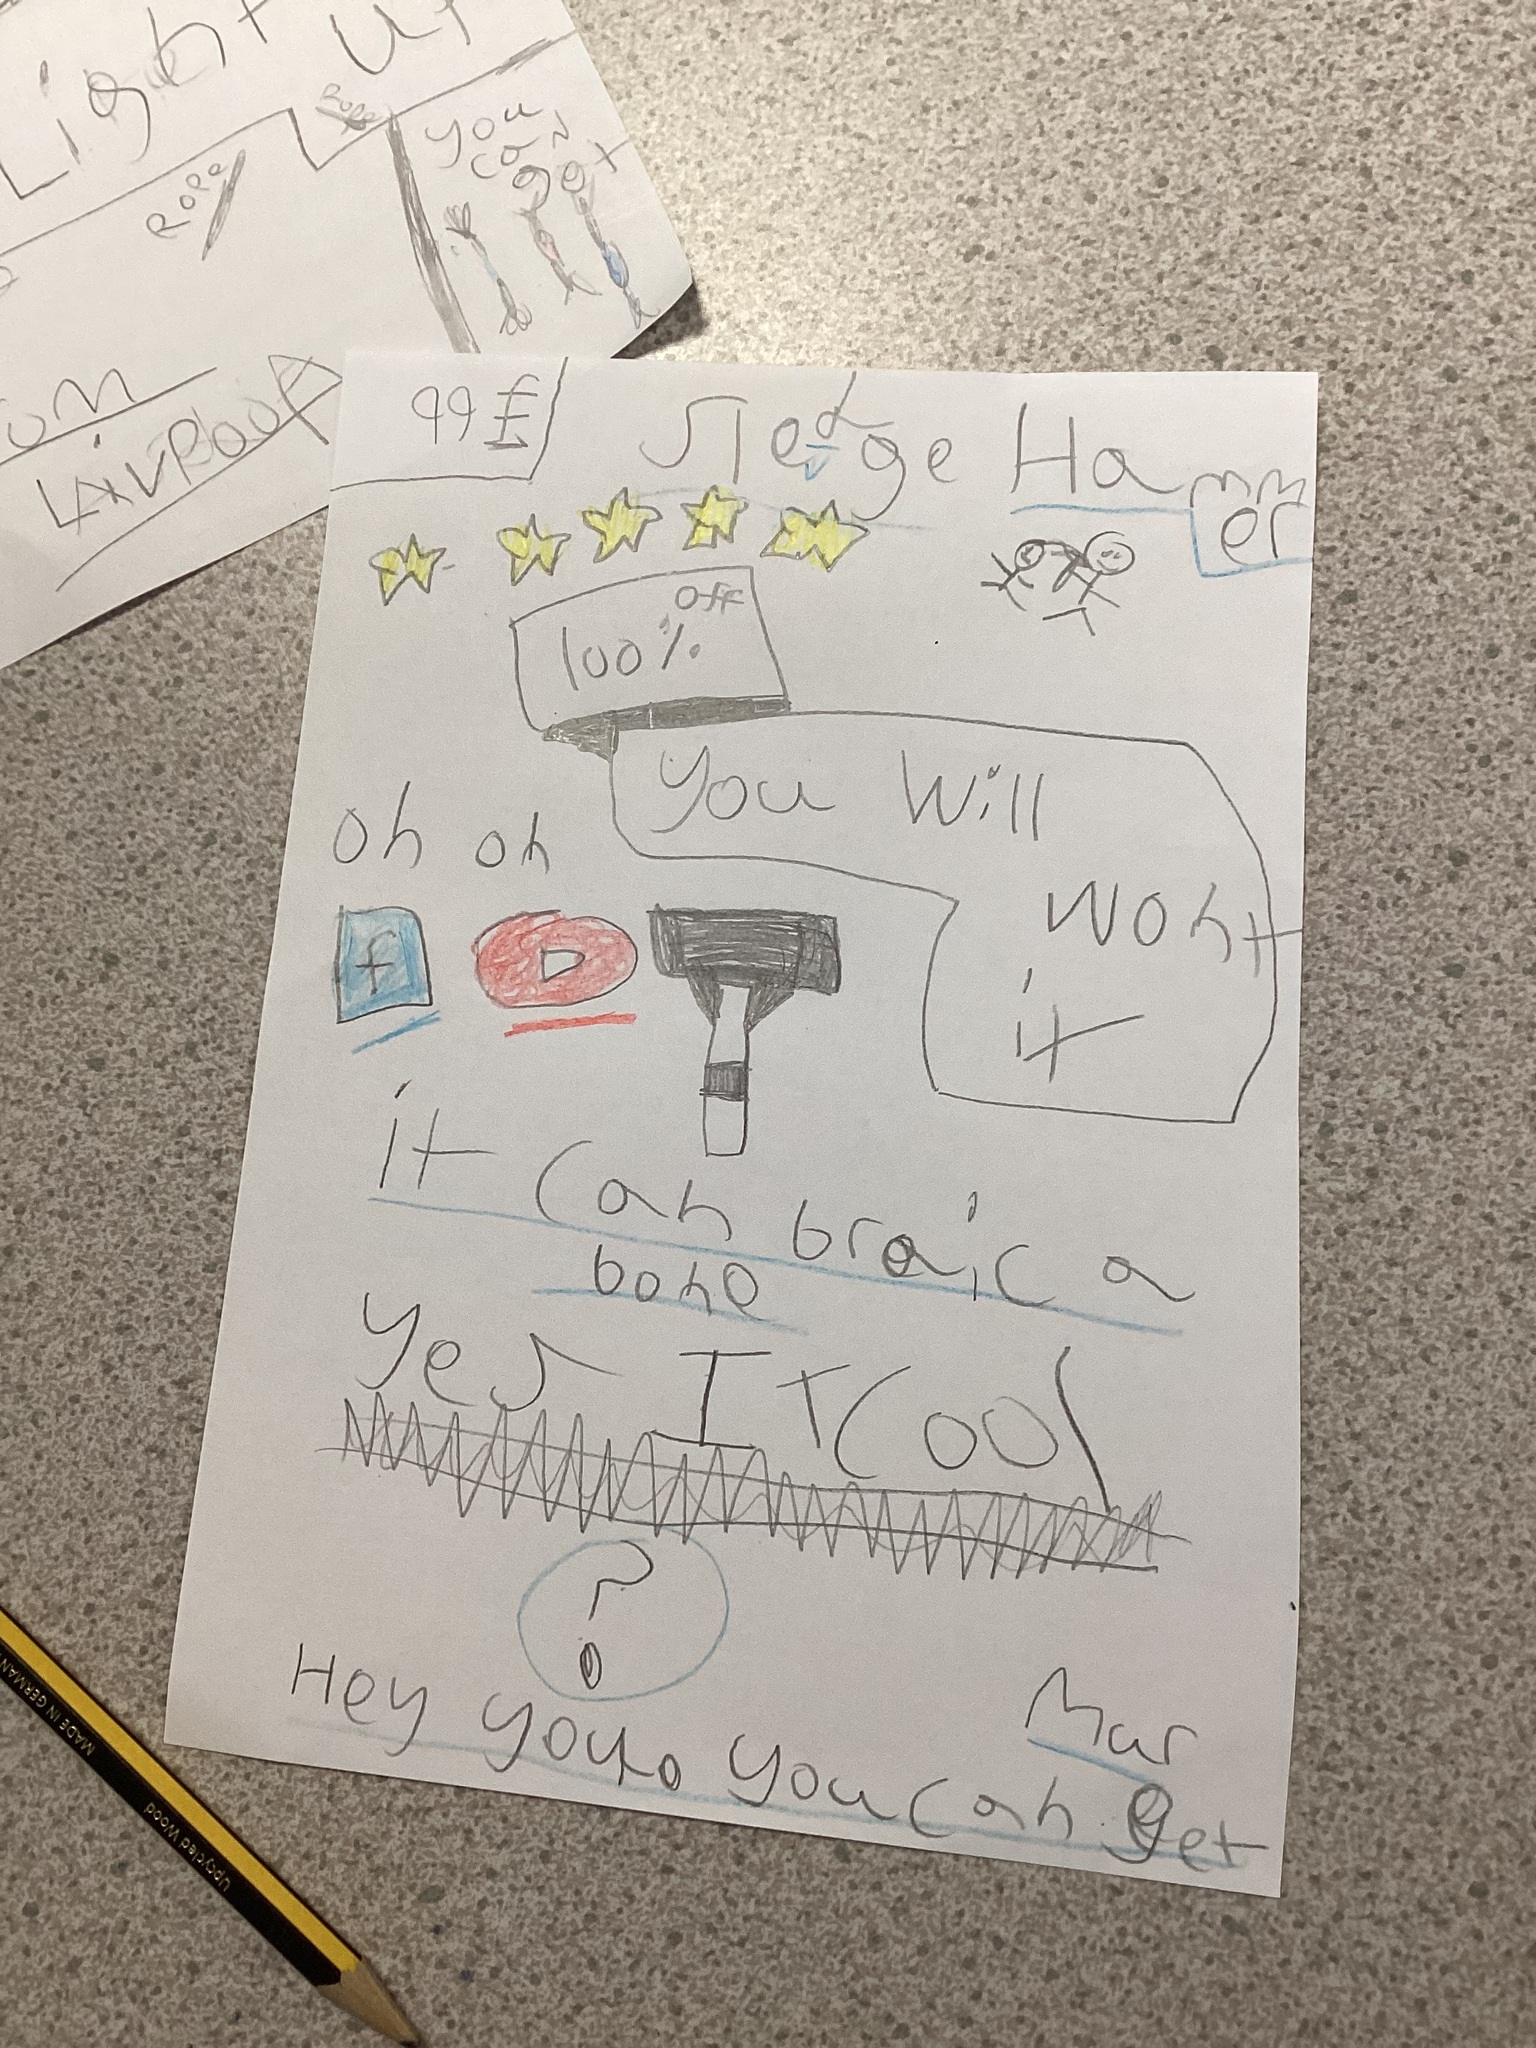 Light Up
Rope
Rope
you
can
get
om
LAivPoof
99£
Sledge Hammer
off
100%
you will
woht
it
oh oh
f
it can braic a
bone
Yes IT Cool
?
Hey you. you can get
Mar
MADE IN GERMANY
Upcycled Wood